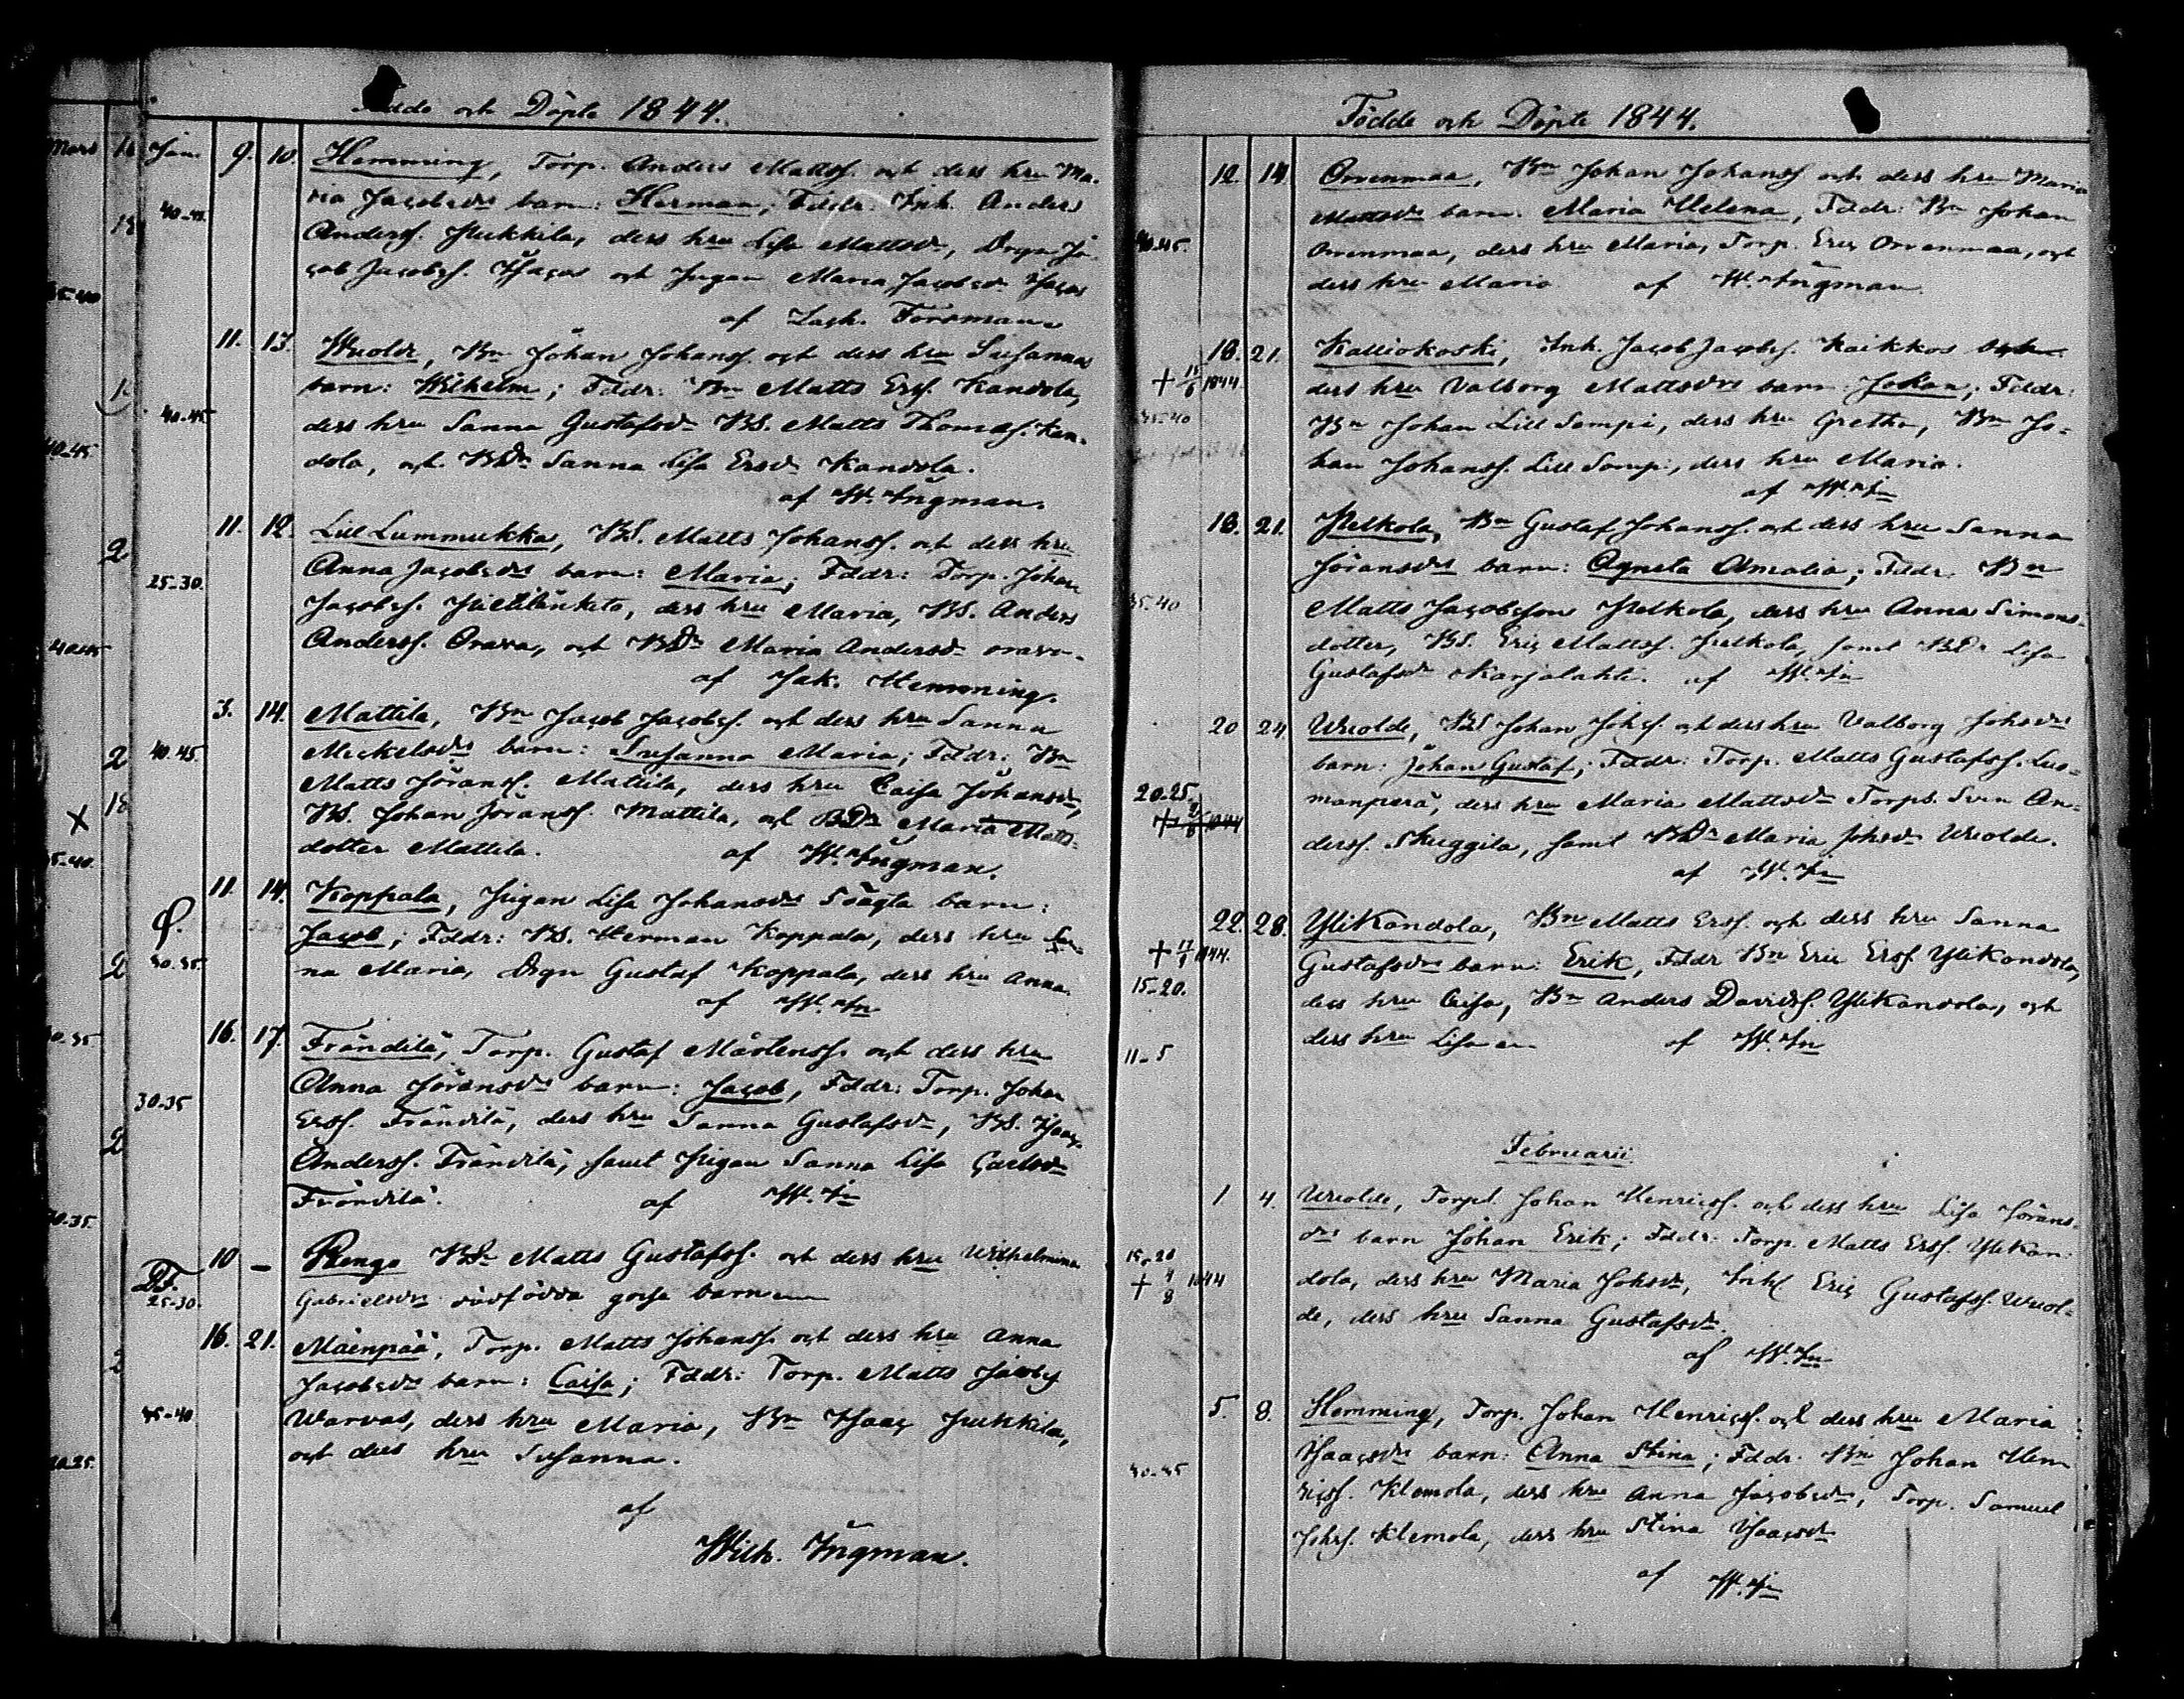 Födde och Döpte 1844.
Jan. 9. 10. Hemming, Torp. Anders Mattss. och dess hru Ma-
40-45. ria Jacobsdrs barn: Herman; Fddr: Inh. Anders
Anderss. dess hru Lisa Mattsdr, Drgn Ja-
cob Jacobss. och Pigan Maria Jacobsdr
af Zach. Forsman.
11. 13. Wuolde, Bn Johan Johanss. och dess hru Susannas
barn: Wilhelm; Fddr: Bn Matts Erss. Kandola,
40-45. dess hru Sanna Gustafsdr BS. Matts Thomass. Kan-
dola, och BDr Sanna Lisa Ersdr Kandola.
af W. Ingman.
11. 12. Lill Lummukka, BS. Matts Johanss. och dess hru
25-30. Anna Jacobsdrs barn: Maria; Fddr: Torp. Johan
Jacobss. dess hru Maria, BS. Anders
Anderss. Orava, och BDr Maria Andersdr Orava.
af Jak. Hemming.
3. 14. Mattila, Bn Jacob Jacobss. och dess hru Sanna
40-45. Mickelsdrs barn: Susanna Maria; Fddr: Bn
Matts Jöranss. Mattila, dess hru Caisa Johansdr,
BS. Johan Jöranss. Mattila, och BDr Maria Matts-
dotter Mattila. af W. Ingman.
11. 14. Koppala, Pigan Lisa Johansdrs oägta barn:
Jacob; Fddr: BS. Herman Koppala, dess hru San-
30-35. na Maria, Drgn Gustaf Koppala, dess hru Anna.
af W. In
16. 17. Frändilä, Torp. Gustaf Mårtenss. och dess hru
30-35 Anna Jöransdrs barn: Jacob, Fddr: Torp. Johan
Erss. Frändilä, dess hru Sanna Gustafsdr, BS. Isaac
Anderss. Frändilä, samt Pigan Sanna Lisa Carlsdr
Frändilä. af W. In
10 — Rengo Matts Gustafss. och dess hru Wilhelmina
DF. 25-30. Gabrielsdrs dödfödda gosse barn
16. 21. Mäenpää, Torp. Matts Johanss. och dess hru Anna
Jacobsdrs barn: Caisa; Fddr: Torp. Matts Jacobss
35-40 Warvas, dess hru Maria, Bn Isaac
och dess hru Susanna.
af
Wilh. Ingman.
Födde och Döpte 1844.
12. 14. Orrenmaa, Bn Johan Johanss och dess hru Maria
Mattsdrs barn: Maria Helena, Fddr: Bn Johan
40-45. Orrenmaa, dess hru Maria, Torp. Eric Orrenmaa, och
dess hru Maria af W. Ingman
18. 21. Kalliokoski, Inh. Jacob Jacobss. Kaikkos
1844 dess hru Valborg Mattsdrs barn Johan; Fddr:
35-40 Bn Johan Lill Sompi, dess hru Gretha, Bn Jo-
han Johanss. Lill Sompi, dess hru Maria.
af W. In
18. 21. Bn Gustaf Johanss. och dess hru Sanna
Jöransdrs barn: Agneta Amalia; Fddr. Bn
35-40 Matts Jacobsson dess hru Anna Simons-
dotter, BS. Eric Mattss. samt BDr Lisa
Gustafsdr Karjalahti. af W. In
20 24. Wuolde, BS Johan Johss. och dess hru Valborg Johsdrs
barn: Johan Gustaf; Fddr: Torp. Matts Gustafss. Luo-
20-25. manperä, dess hru Maria Mattsdr Torps. Sven An-
1844 derss. Skuggila, samt BDr Maria Johsdr Wuolde.
af W. In
22. 28. Ylikandola, Bn Matts Erss. och dess hru Sanna
1844. Gustafsdrs barn: Erik, Fddr Bn Eric Erss Ylikandola,
15-20. dess hru Caisa, Bn Anders Davidss. Ylikandola, och
dess hru Lisa af W. In
Februarii
1 4. Wuolde, Torpd. Johan Henricss. och dess hru Lisa Jörans-
15-20 drs barn Johan Erik; Fddr: Torp. Matts Erss. Ylikan-
1844 dola, dess hru Maria Johsdr, Inh. Eric Gustafss. Wuol-
de, dess hru Sanna Gustafsdr.
af W. In
5. 8. Hemming, Torp. Johan Henricss. och dess hru Maria
Isaacsdrs barn: Anna Stina; Fddr. Bn Johan Hen
40-45 ricss. Klemola, dess hru Anna Jacobsdr, Torp. Samuel
Johss. Klemola, dess hru Stina Isaacsdr
af W. In